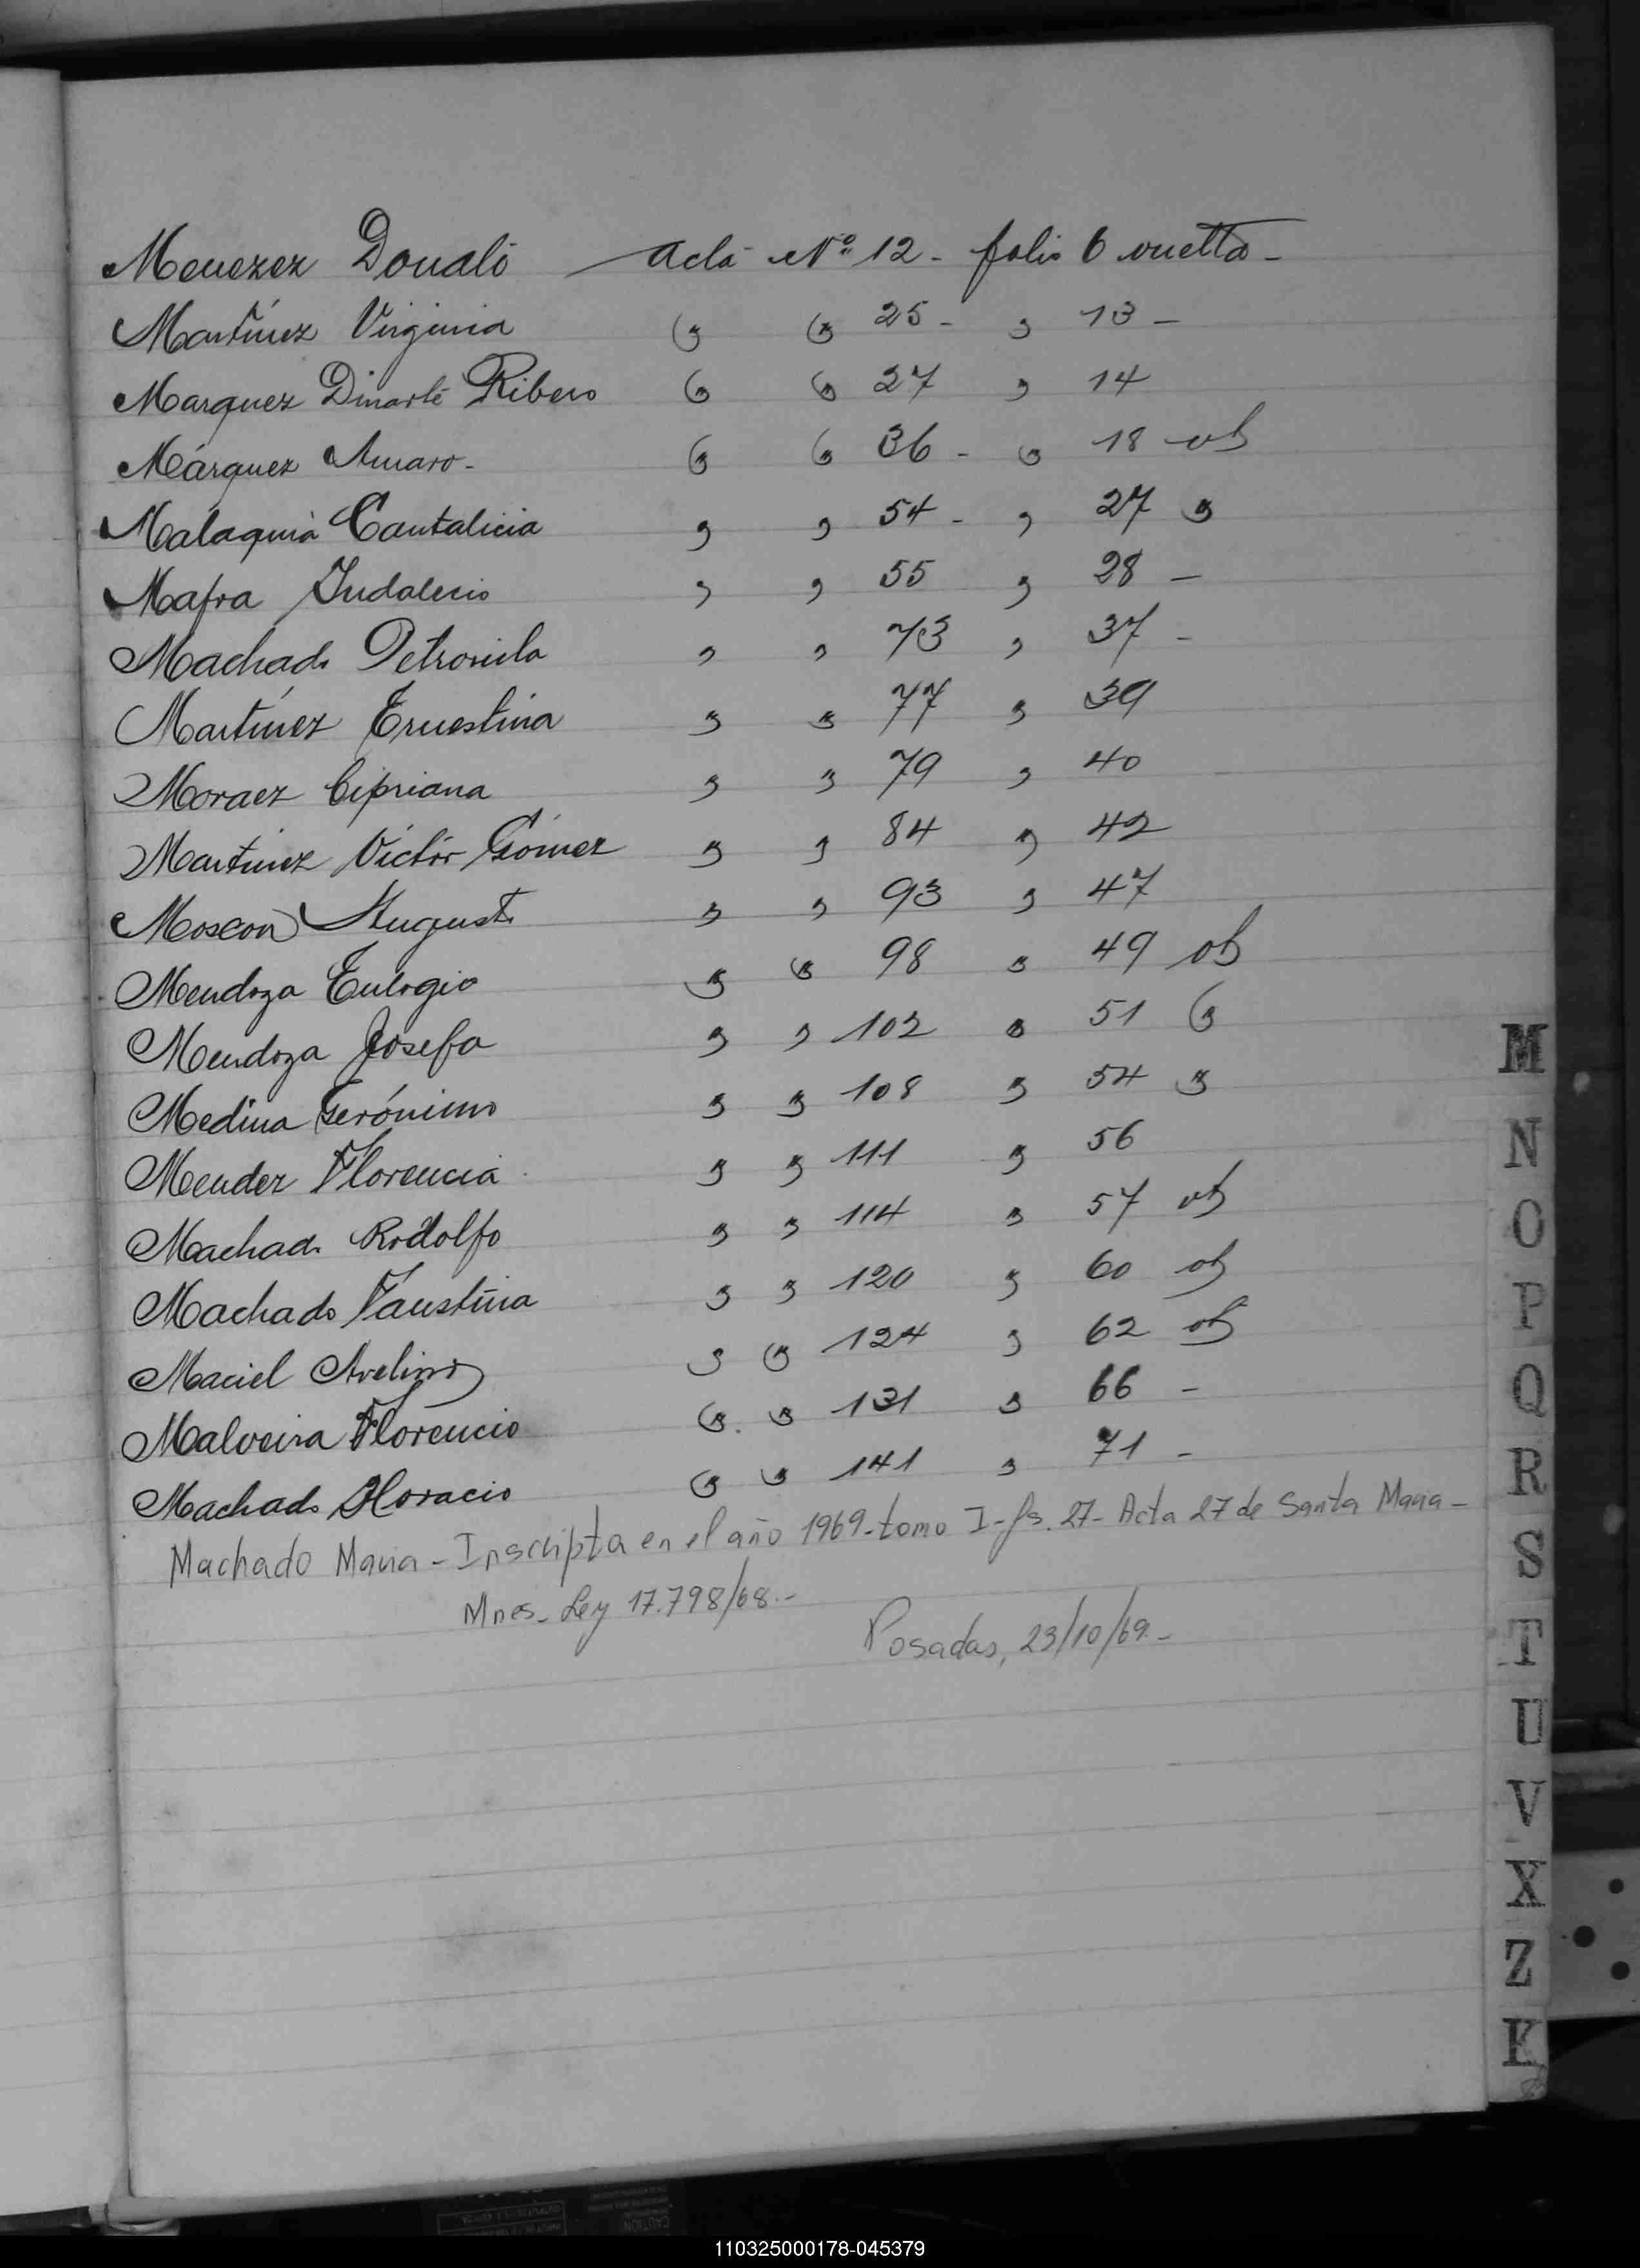 Menezez Donato acta Nº 12 - folio 6 vuelta -
Martínez Virginia " " 25 - " 13 -
Marquez Dinarte Ribero " " 27 " 14
Márquez Amaro - " " 36 - " 18 vta
Malaquia Cantalicia " " 54 - " 27 "
Mafra Indalecio " " 55 " 28 -
Machado Petronila " " 73 " 37 -
Martínez Ernestina " " 77 " 39
Moraez Cipriana " " 79 " 40
Martínez Víctor Gómez " " 84 " 42
Moscon Augusto " " 93 " 47
Mendoza Eulogio " " 98 " 49 vta
Mendoza Josefa " " 102 " 51 "
Medina Gerónimo " " 108 " 54 "
Mendez Florencia " " 111 " 56
Machado Rodolfo " " 114 " 57 vta
Machado Faustina " " 120 " 60 vta
Maciel Avelino " " 124 " 62 vta
Malveira Florencio " " 131 " 66 -
Machado Horacio " " 141 " 71 -
Machado Maria - Inscripta en el año 1969 - tomo I - fs. 27 - Acta 27 de Santa Maria -
Mnes - Ley 17.798/68.-
Posadas, 23/10/69.-
M
N
O
P
Q
R
S
T
U
V
X
Z
K
110325000178-045379